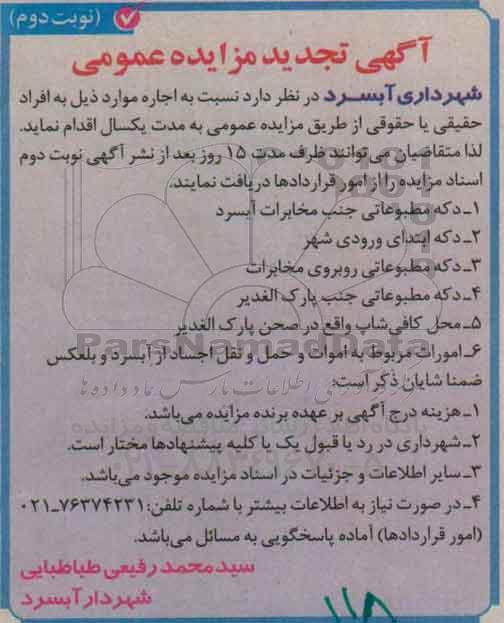 (نوبت دوم)
آگهی تجدید مزایده عمومی
شهرداری آبسرد در نظر دارد نسبت به اجاره موارد ذیل به افراد
حقیقی یا حقوقی از طریق مزایده عمومی به مدت یکسال اقدام نماید.
لذا متقاضیان می‌توانند ظرف مدت ۱۵ روز بعد از نشر آگهی نوبت دوم
اسناد مزایده را از امور قراردادها دریافت نمایند.
۱ـ دکه مطبوعاتی جنب مخابرات آبسرد
۲ـ دکه ابتدای ورودی شهر
۳ـ دکه مطبوعاتی روبروی مخابرات
۴ـ دکه مطبوعاتی جنب پارک الغدیر
۵ـ محل کافی‌شاپ واقع در صحن پارک الغدیر
۶ـ امورات مربوط به اموات و حمل و نقل اجساد از آبسرد و بلعکس
ضمنا شایان ذکر است:
۱ـ هزینه درج آگهی بر عهده برنده مزایده می‌باشد.
۲ـ شهرداری در رد یا قبول یک یا کلیه پیشنهادها مختار است.
۳ـ سایر اطلاعات و جزئیات در اسناد مزایده موجود می‌باشد.
۴ـ در صورت نیاز به اطلاعات بیشتر با شماره تلفن: ۷۶۳۷۴۲۳۱-۰۲۱
(امور قراردادها) آماده پاسخگویی به مسائل می‌باشد.
سید محمد رفیعی طباطبایی
شهردار آبسرد
ParsNamadData